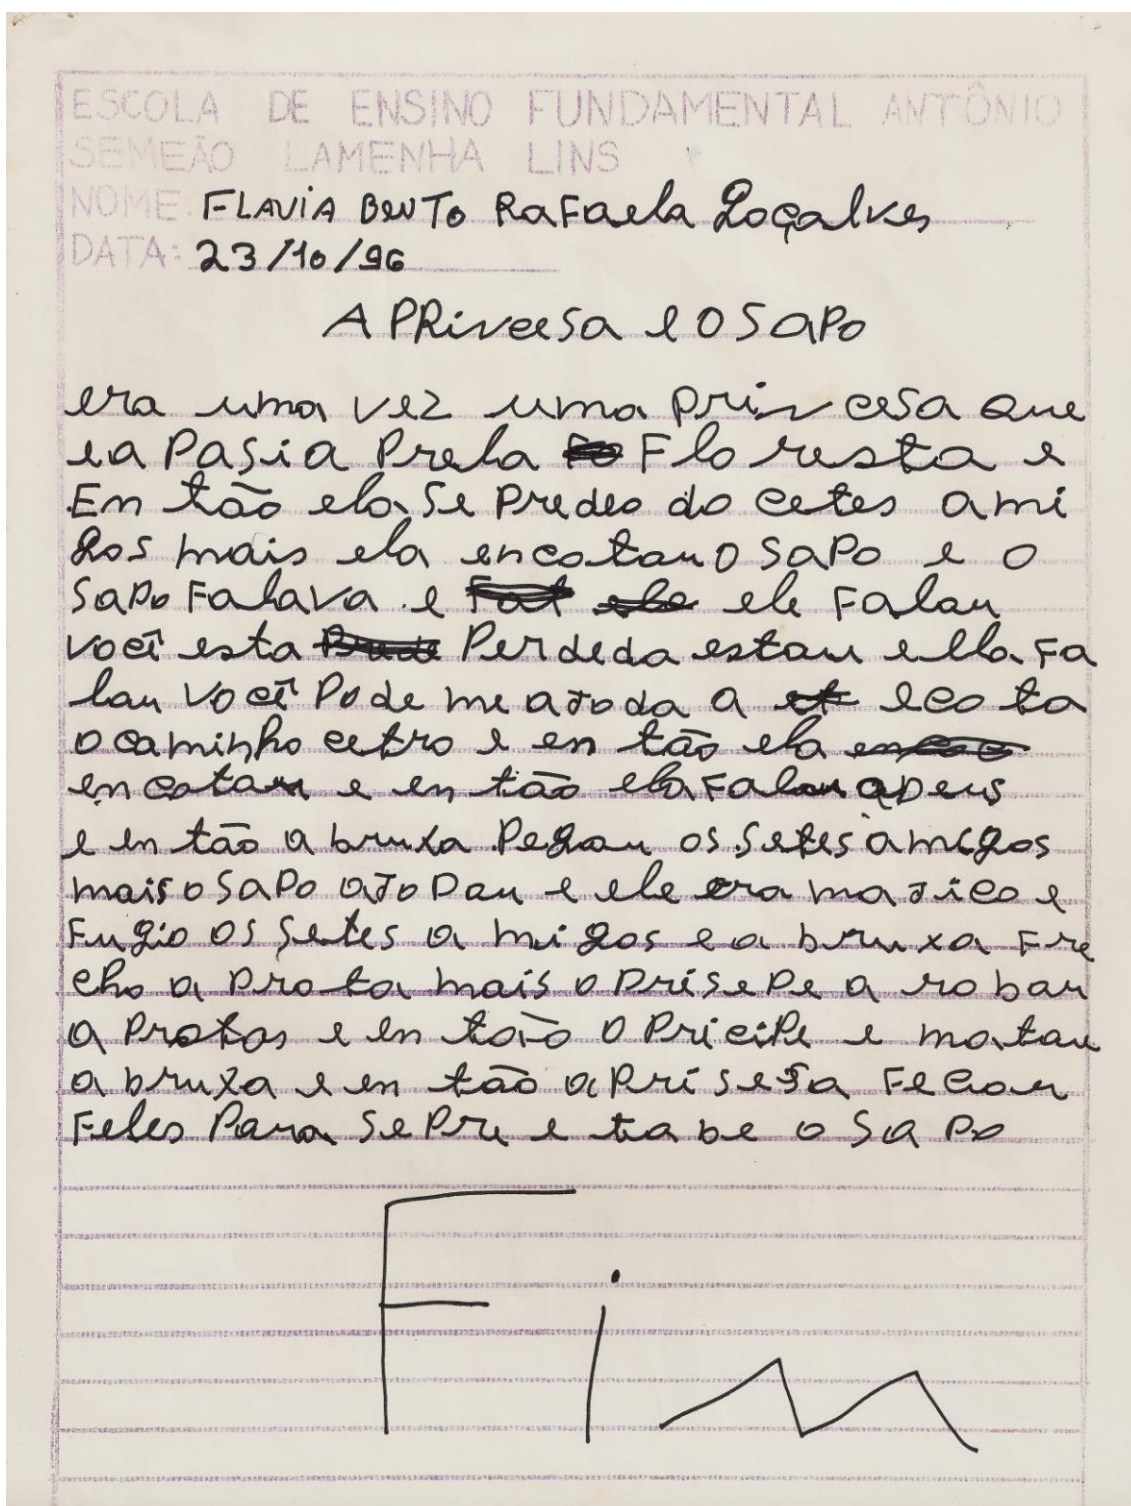 ESCOLA DE ENSINO FUNDAMENTAL ANTÔNIO
SEMEÃO LAMENHA LINS
NOME: FLAVIA BENTO RaFaela Goçalves
DATA: 23/10/96
A PRinceesa e O SaPo
era uma vez uma princesa que
ia Pasia Prela Floresta e
Em tão ela Se Predeo do cetes ami
gos mais ela encotau O SaPo e o
SaPo Falava e ele Falau
você esta Perdeda estau e lla Fa
lau você Pode me aJoda a eco ta
o caminho cetro e en tão ela
encotau e en tão ela Falau aDeus
e en tão a bruxa Pegau os Setes amigos
mais o SaPo aJoDau e ele era maJico e
Fugio os Setes a migos e a bruxa Fre
cho a Prota mais o Prisepe a robau
a Protas e en tão o Pricipe e matau
a bruxa e en tão a Prisesa Fecou
Feles Para SePre e tabe o SaPo
Fim